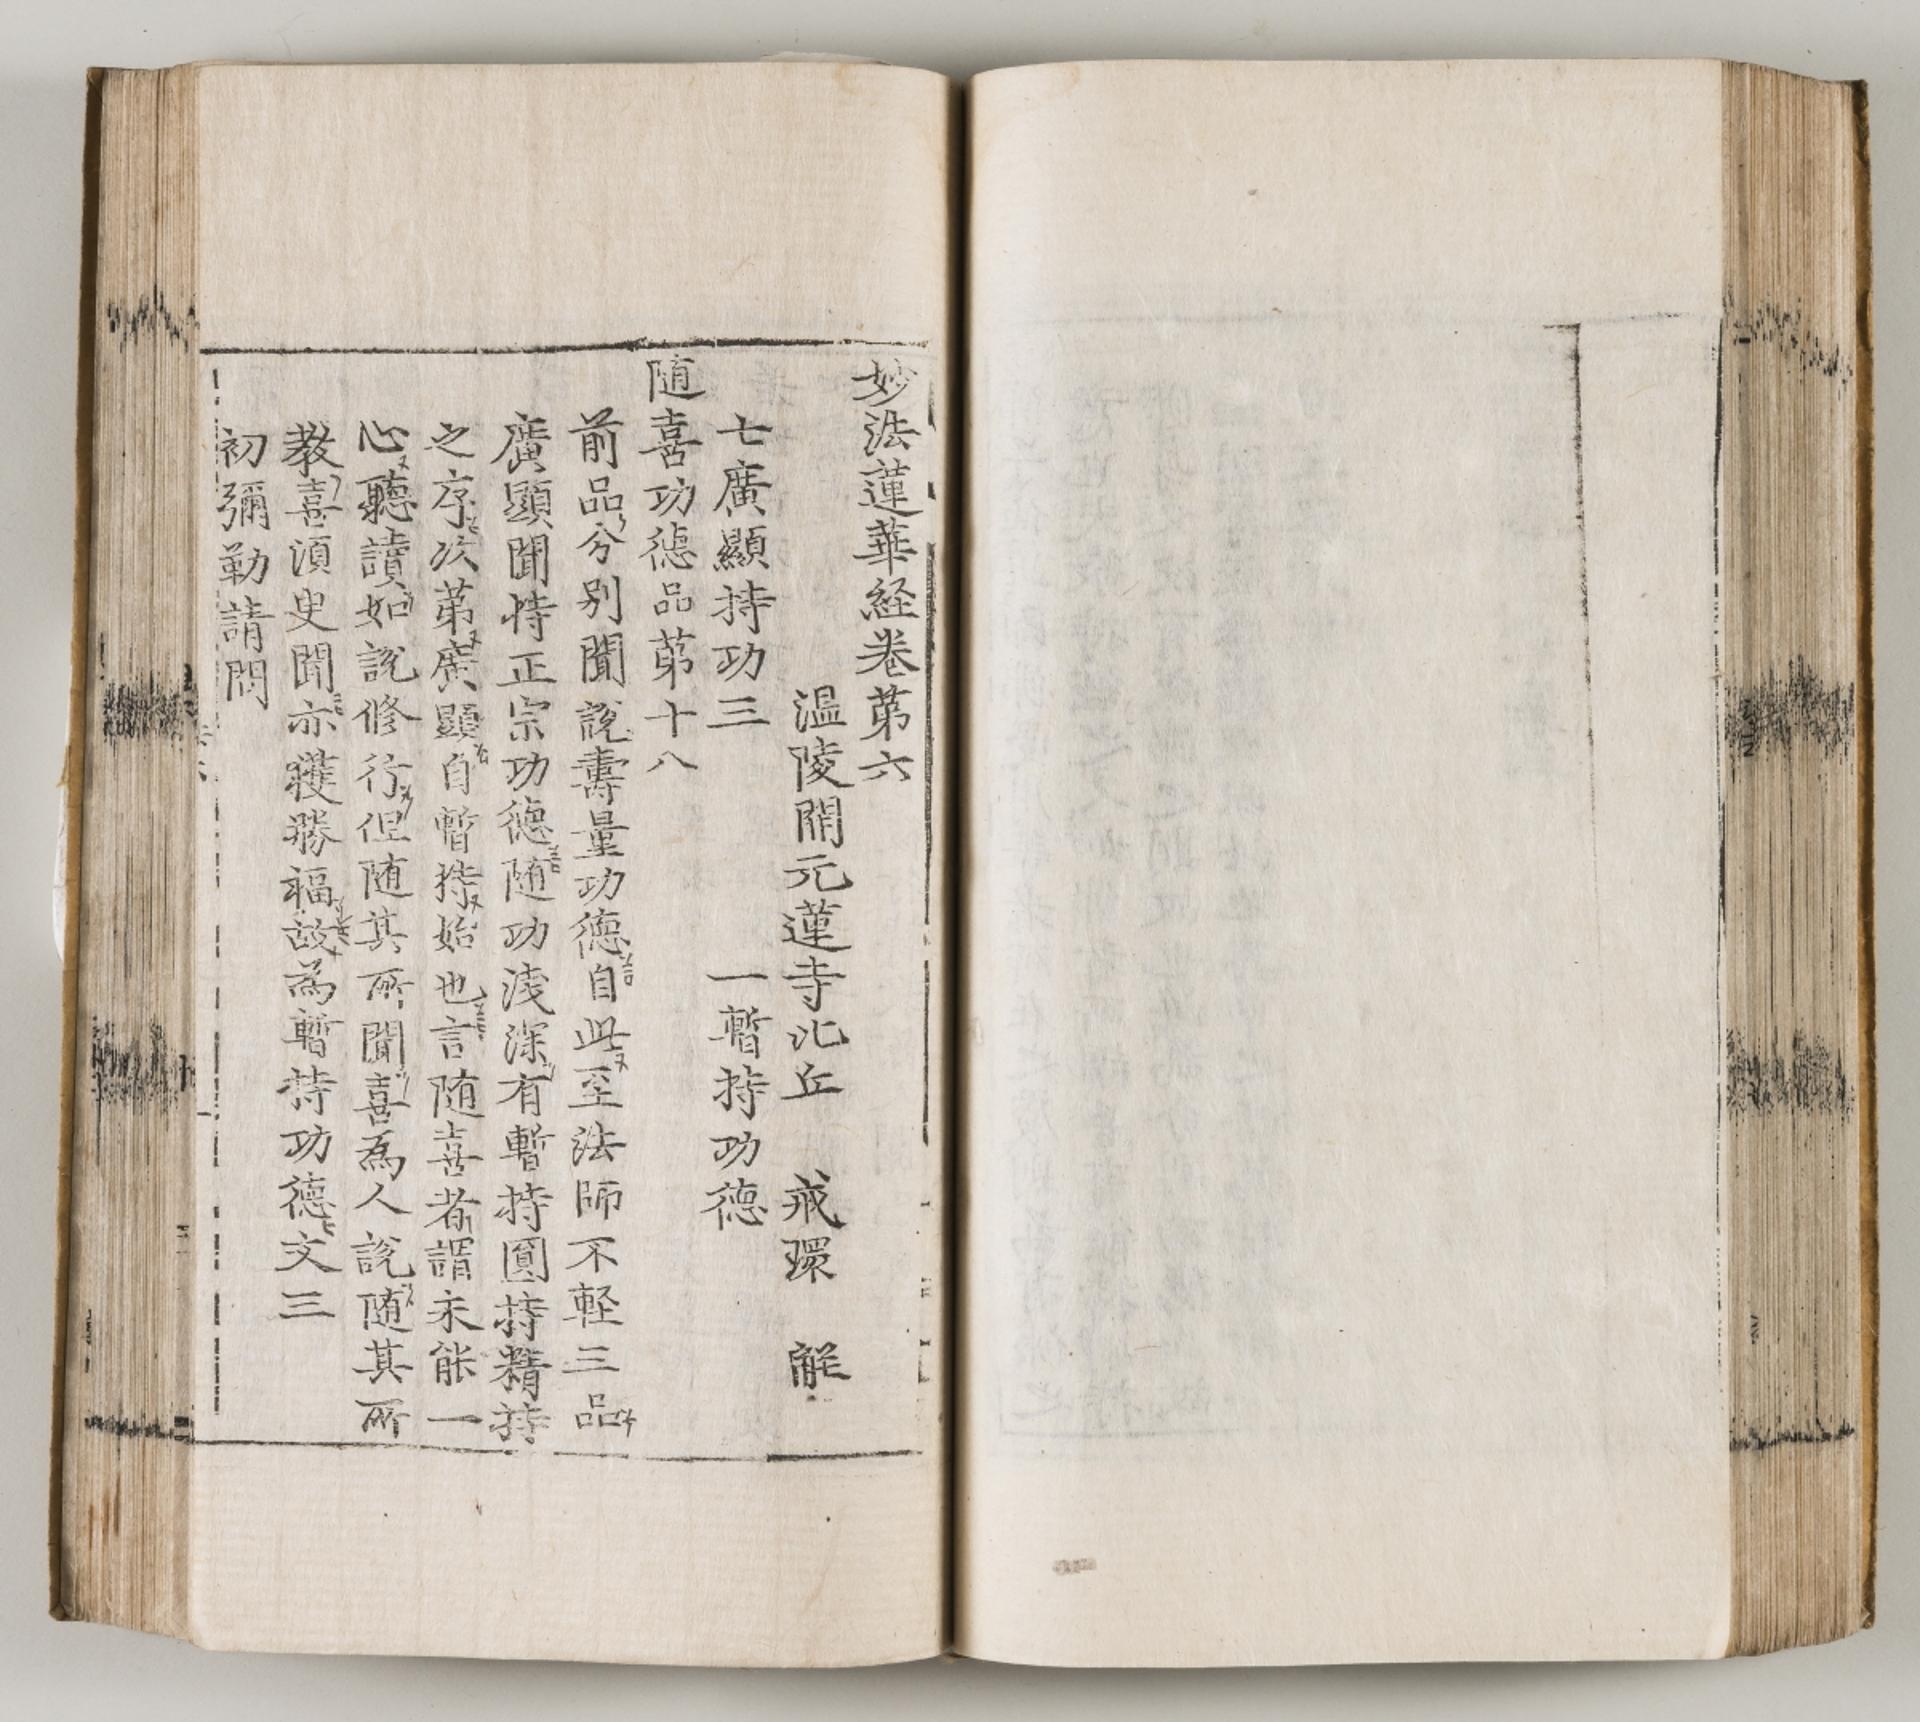 妙法蓮華経卷苐六
温陵開元蓮寺比丘 戒環 解
七廣顯持功三 一暫持功德
随喜功德品苐十八
前品分别聞說壽量功德自此至法師不軽三品
廣顕聞持正宗功德随功淺深有暫持圓持精持
之序次苐廣顕自暫持始也言随喜者謂未能一
心聽讀如說修行但随其所聞喜為人說随其所
教喜湏臾聞亦獲勝福故為暫持功德文三
初彌勒請問